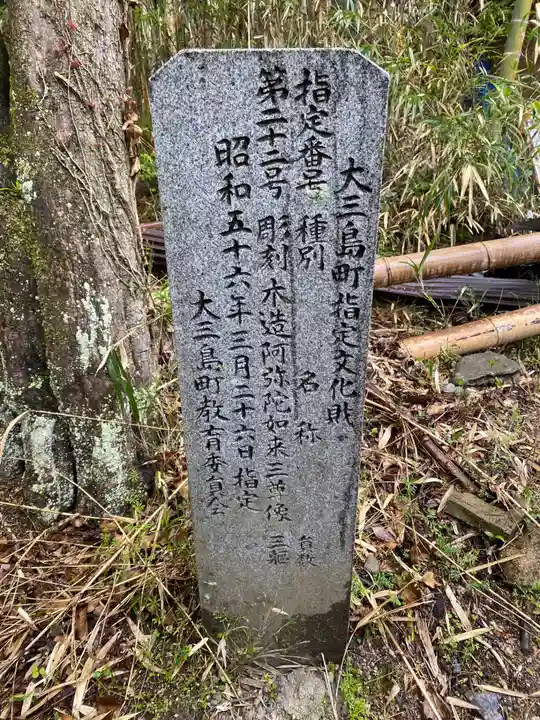 大三島町指定文化財
指定番号 種別 名称 員数
第二十二号 彫刻 木造阿弥陀如来三尊像 三躯
昭和五十六年三月二十六日指定
大三島町教育委員会